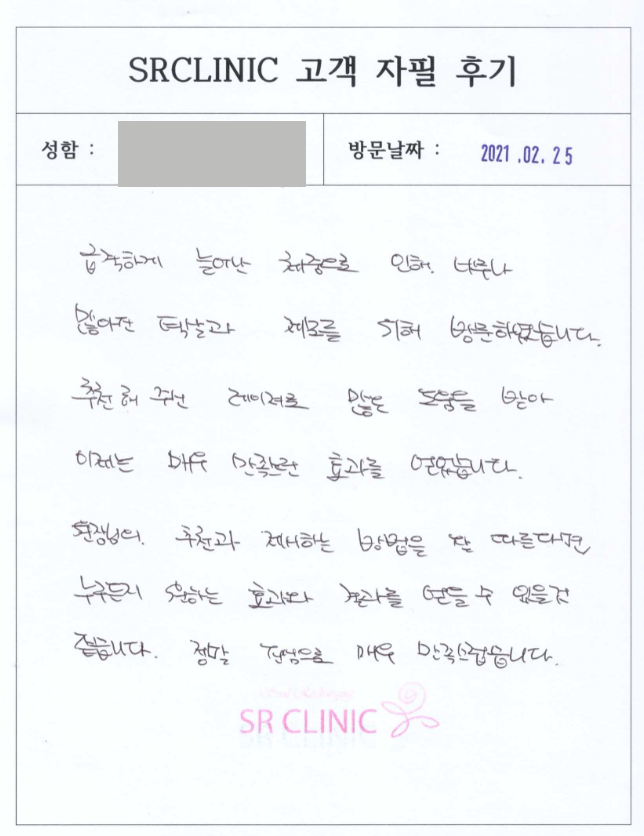 SRCLINIC 고객 자필 후기
성함 :
방문날짜 : 2021.02.25
급작하게 늘어난 체중으로 인해. 너무나
많아진 턱살과 제모를 위해 방문하였습니다.
추천해 주신 레이저로 많은 도움을 받아
이제는 매우 만족할만한 효과를 얻었습니다.
원장님의. 추천과 제시하는 방법을 잘 따른다면
누구든지 원하는 효과와 결과를 얻을 수 있을것
같습니다. 정말 진심으로 매우 만족스럽습니다.
SR CLINIC